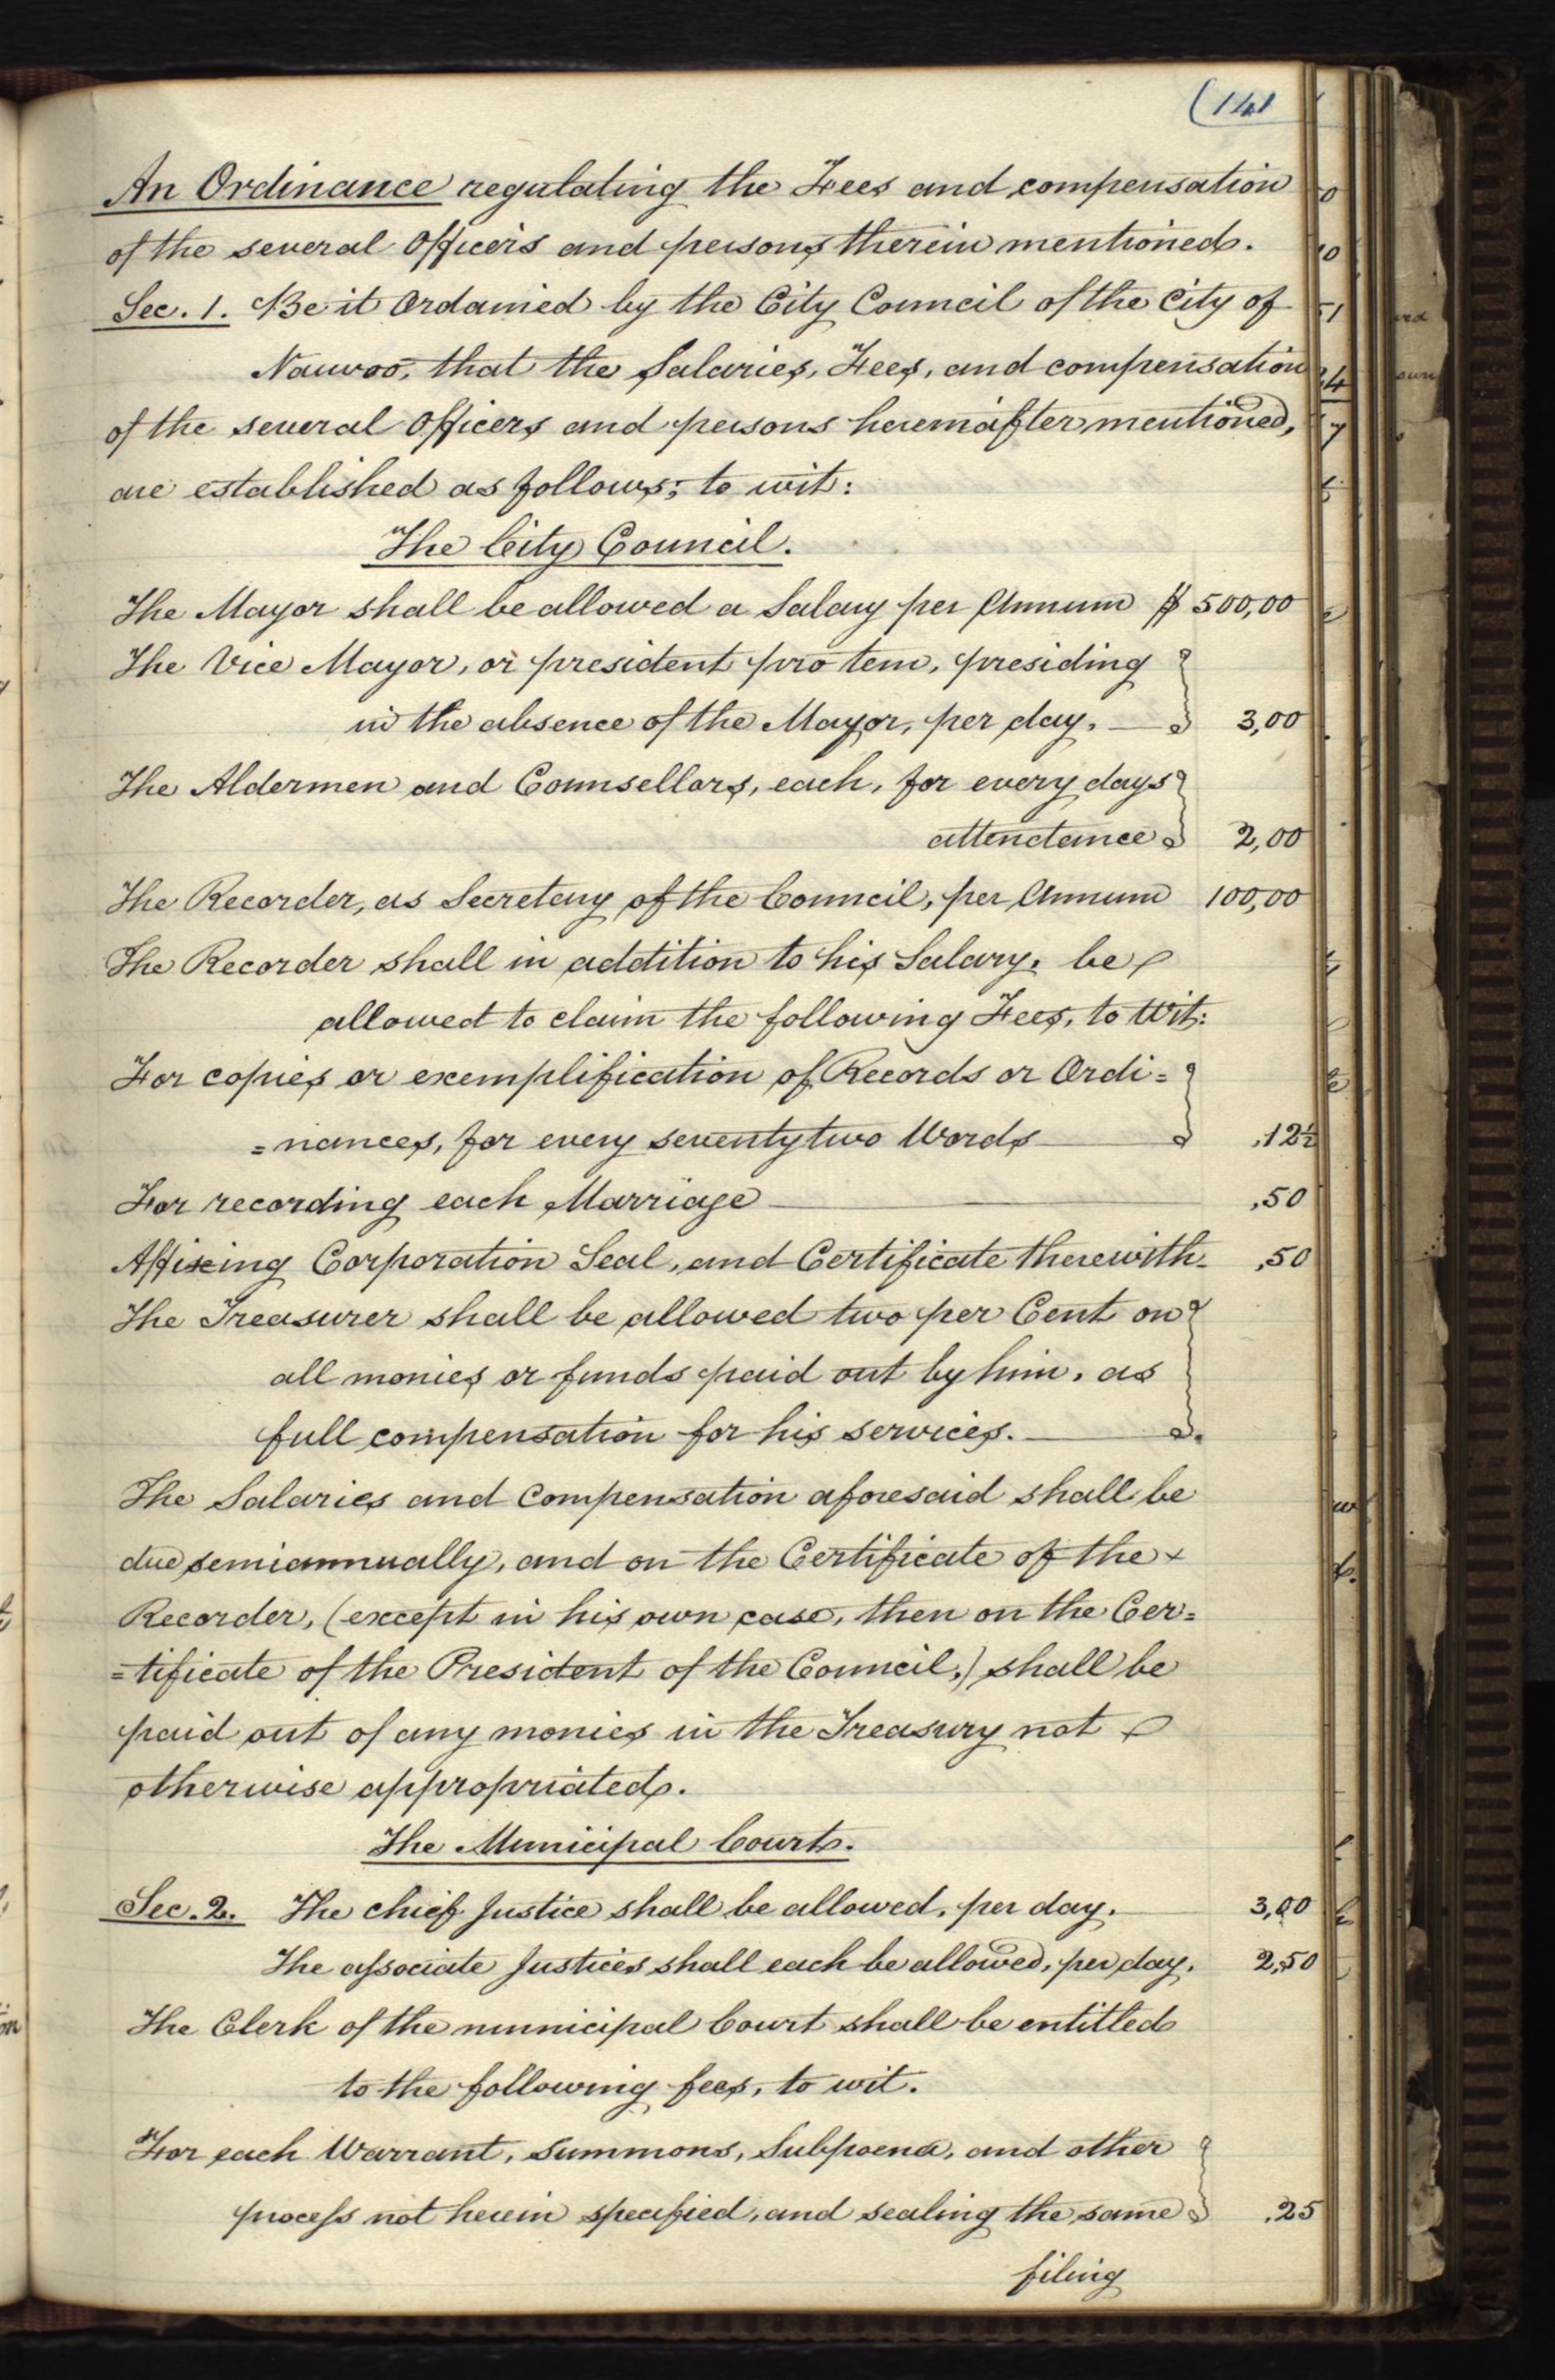 (141
An Ordinance regulating the Fees and compensation
of the several Officers and persons therein mentioned.
Sec. 1. Be it Ordained by the City Council of the City of
Nauvoo, that the Salaries, Fees, and compensation
of the several Officers and persons hereinafter mentioned,
are established as follows; to wit:
The City Council.
The Mayor shall be allowed a Salary per Annum $ 500,00
The Vice Mayor, or president pro tem, presiding
in the absence of the Mayor, per day. 3,00
The Aldermen and Counsellors, each, for every days
attendance 2,00
The Recorder, as Secretary of the Council, per Annum 100,00
The Recorder shall in addition to his Salary, be
allowed to claim the following Fees, to Wit:
For copies or exemplification of Records or Ordi=
=nances, for every seventy two Words ,12½
For recording each Marriage ,50
Affixing Corporation Seal, and Certificate therewith ,50
The Treasurer shall be allowed two per Cent on
all monies or funds paid out by him, as
full compensation for his services.
The Salaries and Compensation aforesaid shall be
due semiannually, and on the Certificate of the
Recorder, (except in his own case, then on the Cer=
=tificate of the President of the Council,) shall be
paid out of any monies in the Treasury not
otherwise appropriated.
The Municipal Court.
Sec. 2. The chief Justice shall be allowed, per day. 3,00
The associate Justices shall each be allowed, per day. 2,50
The Clerk of the municipal Court shall be entitled
to the following fees, to wit.
For each Warrant, Summons, Subpoena, and other
process not herein specified, and sealing the same ,25
filing